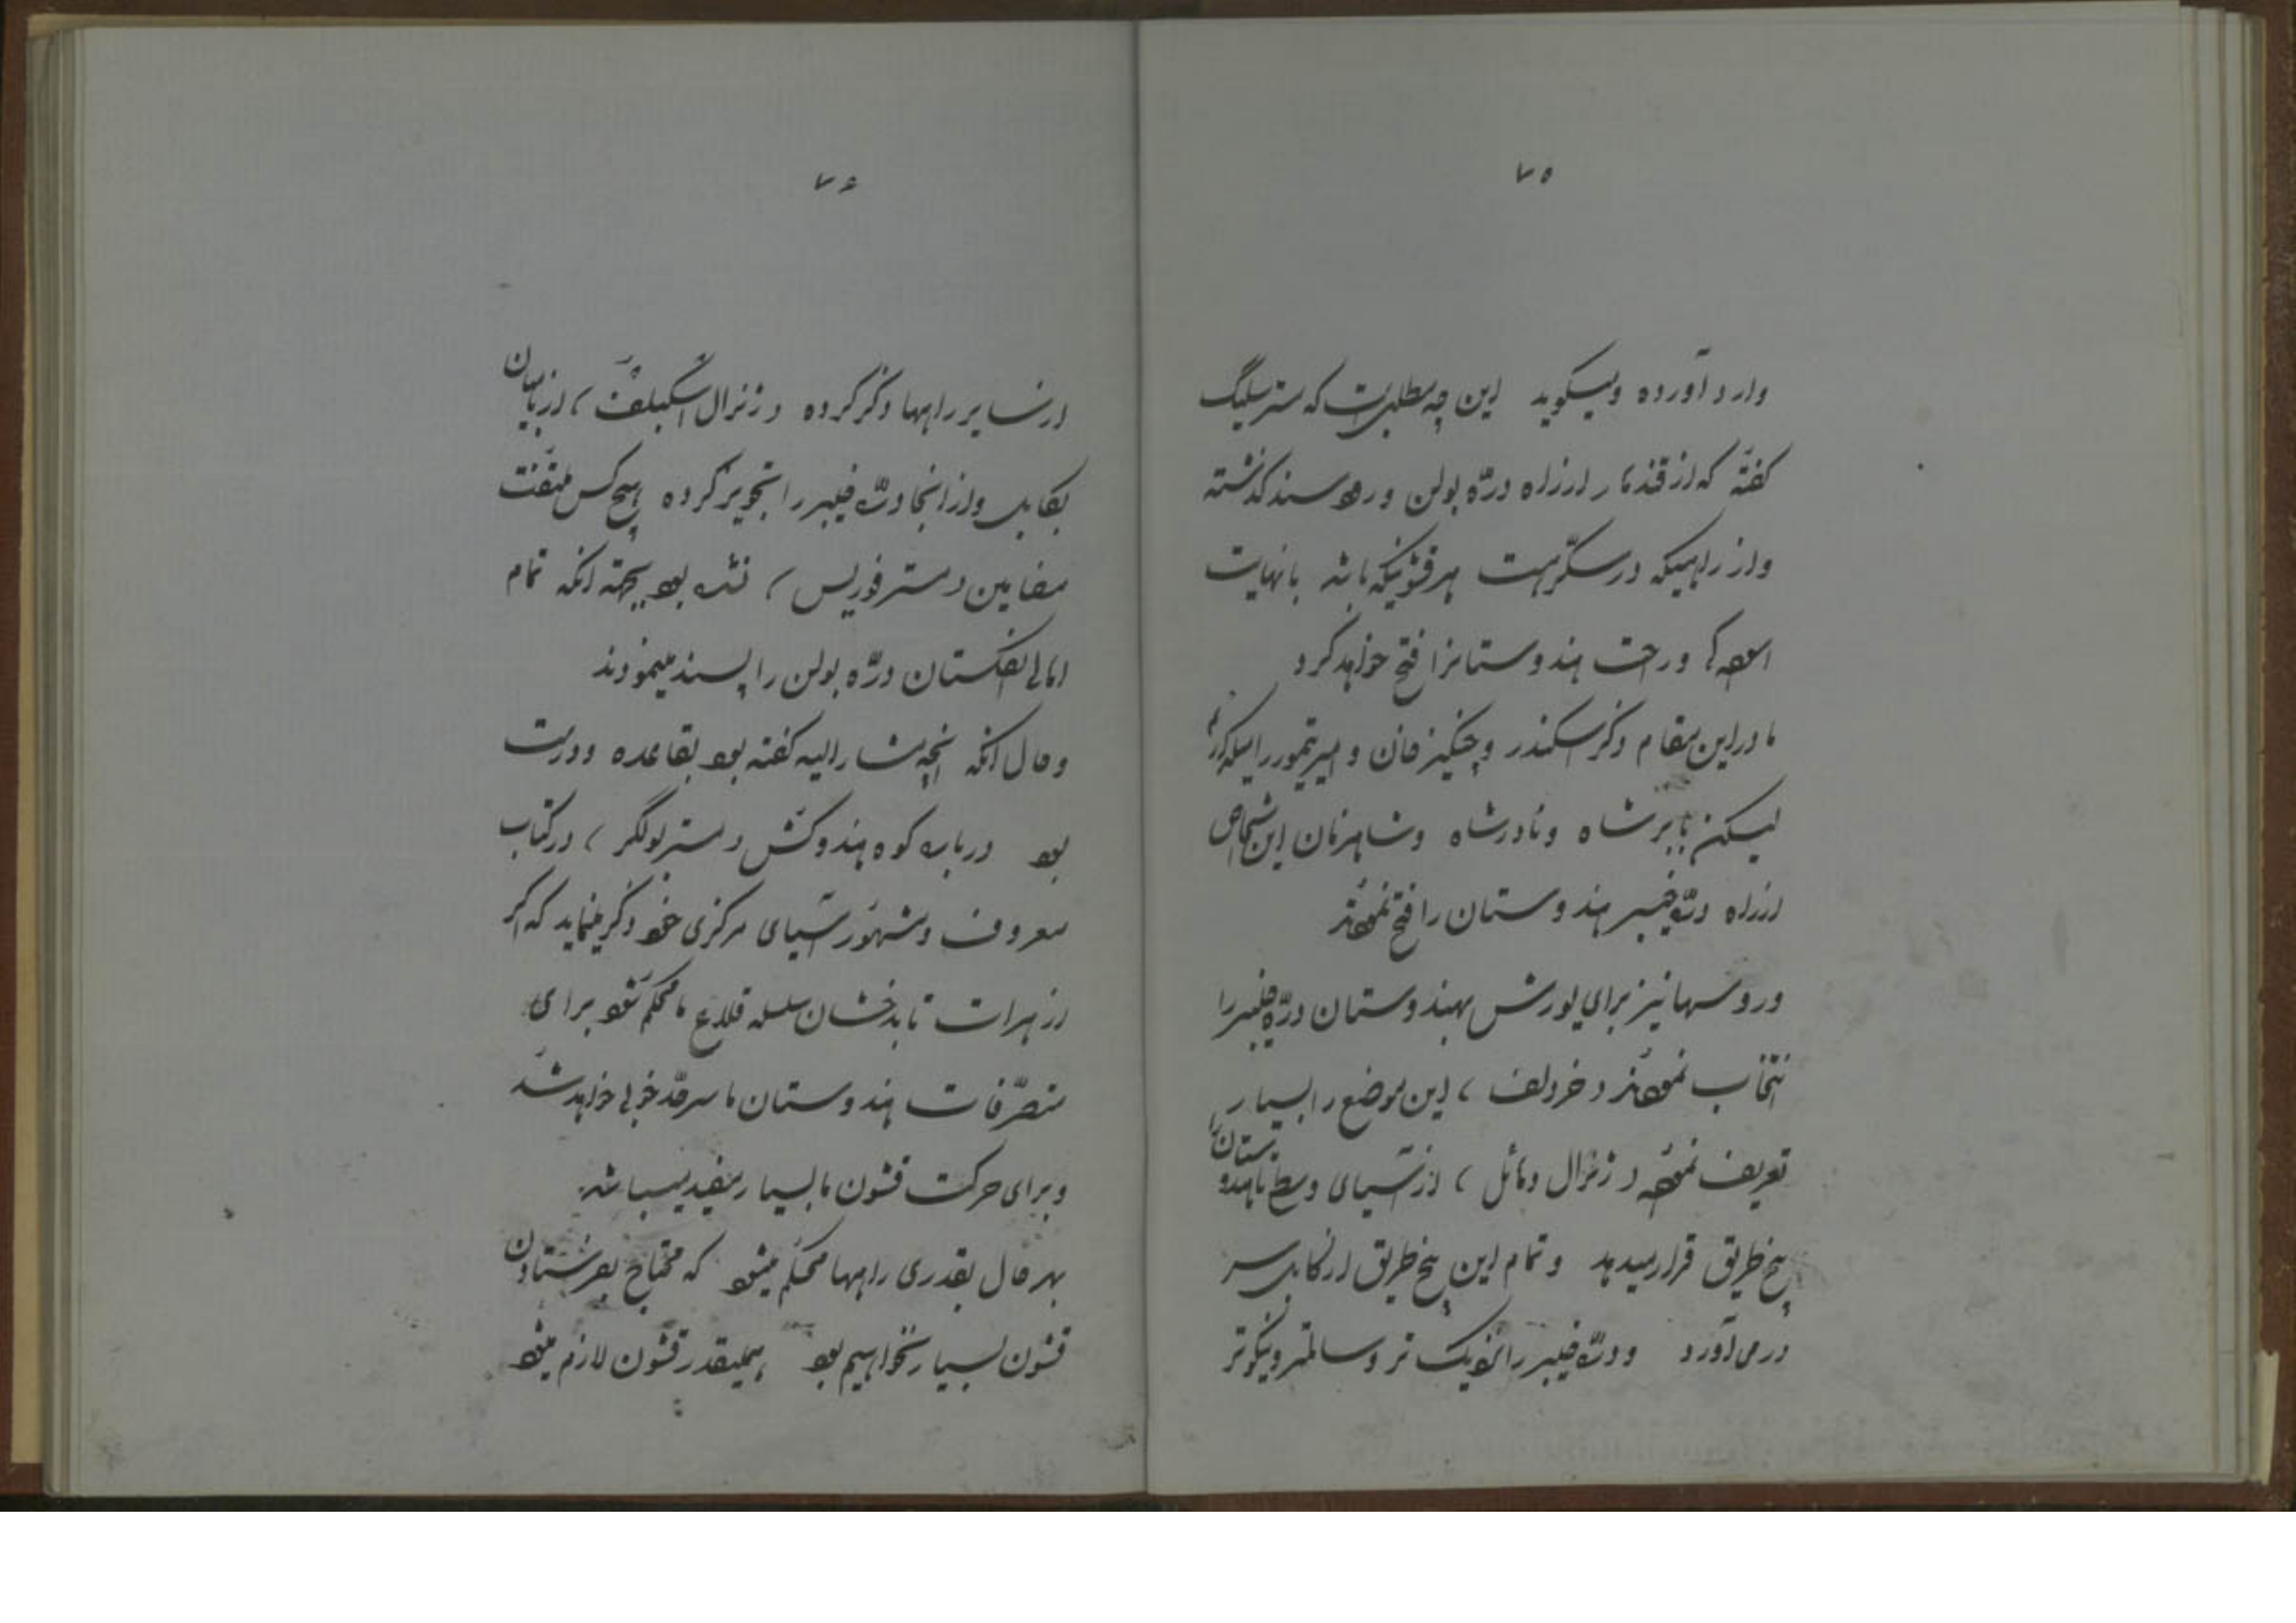 ۷۵
وارد آورده و میگوید این چه مطلبی است که مستر سلیگ
گفته که از قندهار از راه درّه بولن و رود سند گذشته
و از راهیکه در سکّر است هر قشونیکه باشد با نهایت
آسودگی و راحت هندوستانرا فتح خواهد کرد
ما در این مقام ذکر اسکندر و چنگیز خان و امیر تیمور را
لیکن بابر شاه و نادر شاه و شاه زمان این اشخاص
از راه درّه خیبر هندوستان را فتح نمودند
و روسها نیز برای یورش بهندوستان درّه خیبر را
انتخاب نمودند ( خرولف ) این موضع را بسیار
تعریف نموده ( ژنرال ) از آسیای وسط تا هندوستان را
پنج طریق قرار میدهد و تمام این پنج طریق از کابل سر
در می آورد و درّه خیبر را نزدیک تر و سالمتر و نیکوتر
۷۶
از سایر راهها ذکر کرده ( ژنرال اسکبلف ) از بامیان
بکابل و از آنجا درّه خیبر را تجویز کرده هیچ کس ملتفت
مضامین ( مستر فوریس ) نشده بود بجهته آنکه تمام
اهالی انگلستان درّه بولن را پسند مینمودند
و حال آنکه آنچه مشار الیه گفته بود بقاعده و درست
بود درباره کوه هندوکش ( مستر بولگر ) در کتاب
معروف و مشهور آسیای مرکزی خود ذکر مینماید که اگر
از هرات تا بدخشان سلسله قلاع ما محکم شود برای
متصرّفات هندوستان ما سرحدّ خوبی خواهد شد
و برای حرکت قشون ما بسیار مفید میباشد.
بهر حال بقدری راهها محکم میشود که محتاج بفرستادن
قشون بسیار نخواهیم بود همینقدر قشون لازم میشود